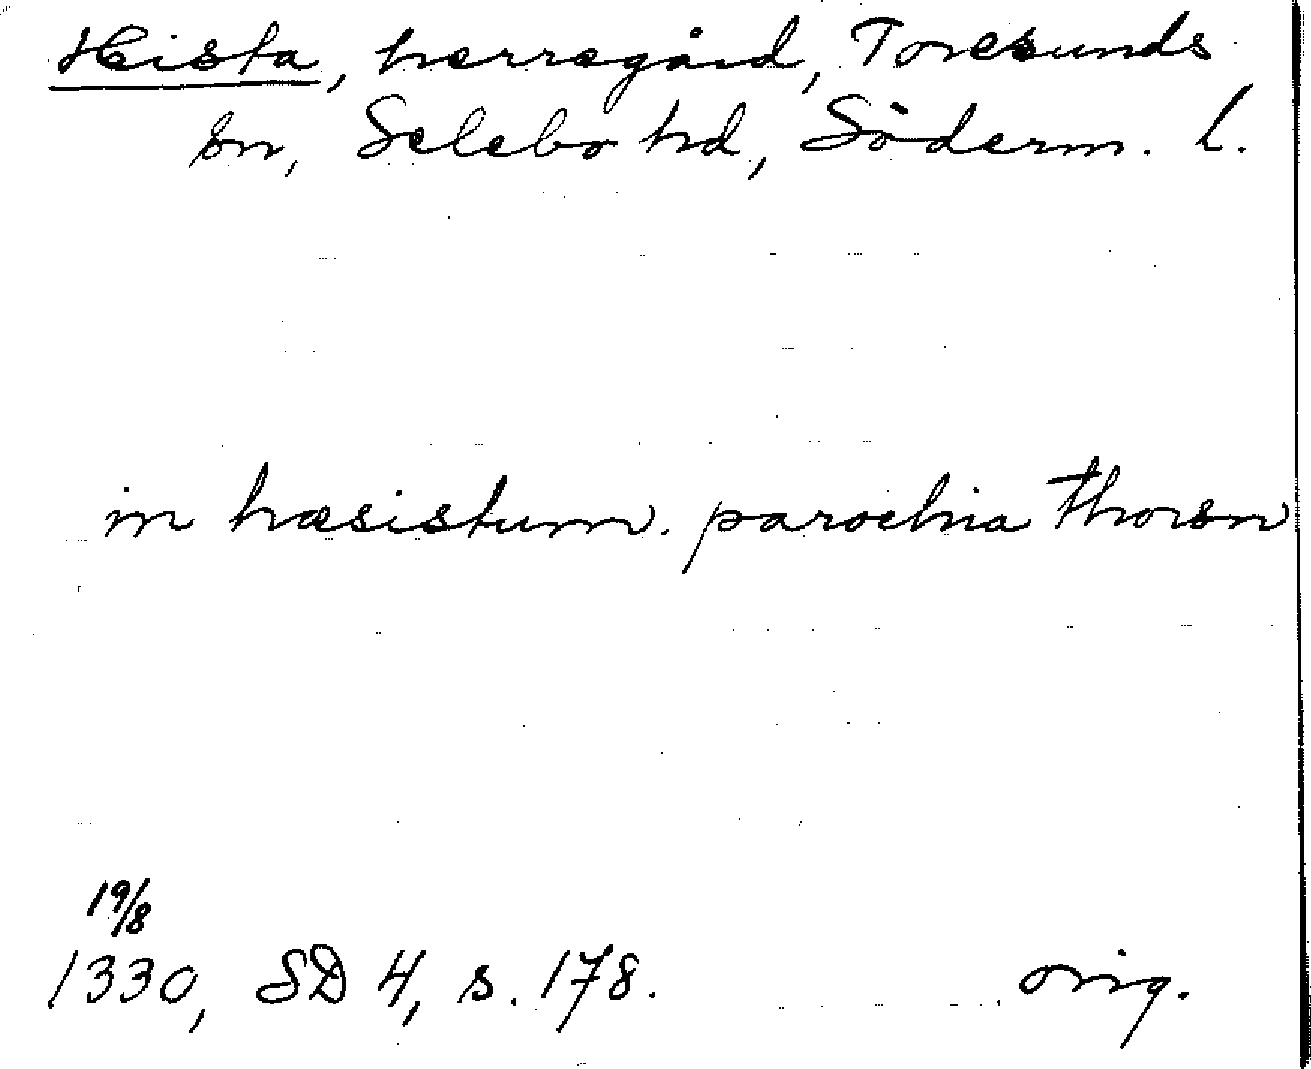 Hista, herregård, Toresunds
sn, Selebo hd, Söderm. l.
in hæsistum. parochia Thorsn
19/8
1330, SD 4, s. 178. orig.